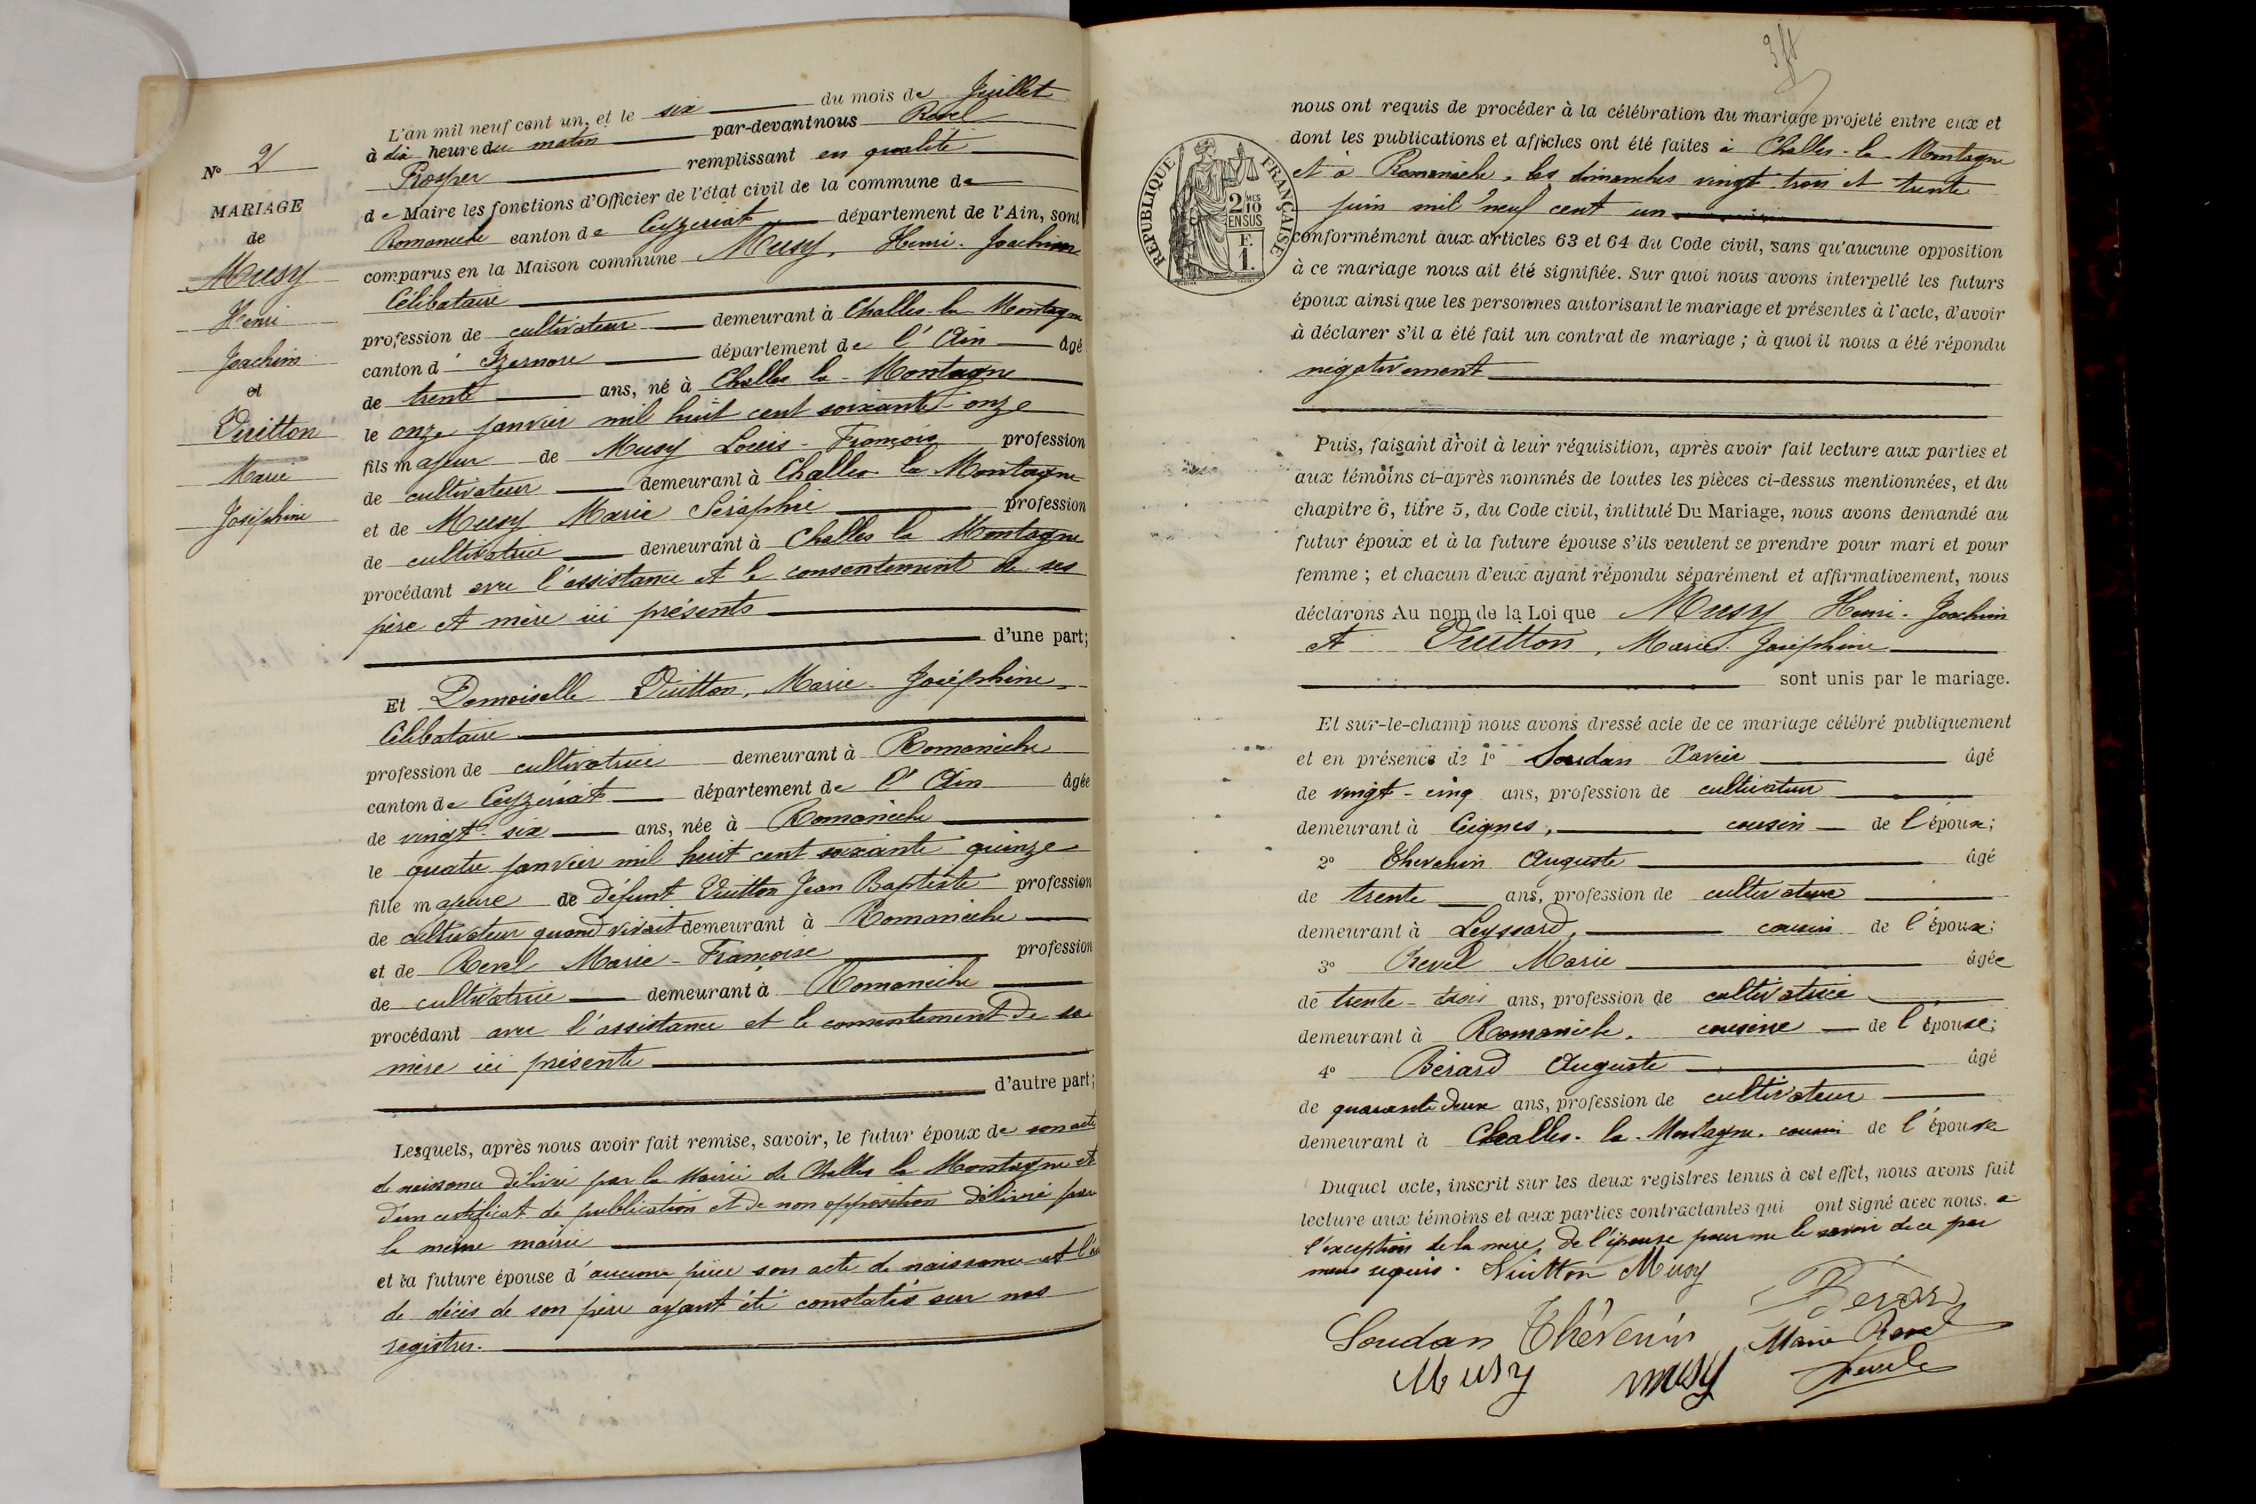 N° 2
MARIAGE
de
Musy
Henri
Joachim
et
Vuitton
Marie
Joséphine
L'an mil neuf cent un, et le six du mois de Juillet
à dix heure du matin par-devant nous Revel
Prosper remplissant en qualité
de Maire les fonctions d'Officier de l'état civil de la commune de
Romanèche canton de Ceyzeriat département de l'Ain, sont
comparus en la Maison commune Musy, Henri-Joachim
Célibataire
profession de cultivateur demeurant à Challes-la-Montagne
canton d'Izernore département de l'Ain âgé
de trente ans, né à Challes la-Montagne
le onze janvier mil huit cent soixante onze
fils majeur de Musy Louis-François profession
de cultivateur demeurant à Challes la Montagne
et de Musy Marie Séraphie profession
de cultivatrice demeurant à Challes la Montagne
procédant avec l'assistance et le consentement de ses
père et mère ici présents
d'une part;
Et Demoiselle Vuitton, Marie-Joséphine
Célibataire
profession de cultivatrice demeurant à Romanèche
canton de Ceyzériat département de l'Ain âgée
de vingt-six ans, née à Romanèche
le quatre janvier mil huit cent soixante quinze
fille majeure de défunt Vuitton Jean Baptiste profession
de cultivateur quand vivait demeurant à Romanèche
et de Revel Marie-Françoise profession
de cultivatrice demeurant à Romanèche
procédant avec l'assistance et le consentement de sa
mère ici présente
d'autre part;
Lesquels, après nous avoir fait remise, savoir, le futur époux de son acte
de naissance délivré par la Mairie de Challes la Montagne et
d'un certificat de publication et de non opposition délivré par
la même mairie
et la future épouse d'aucune pièce son acte de naissance et l'
de décès de son père ayant été constatés sur nos
registres.
REPUBLIQUE FRANÇAISE
2 MES 10
EN SUS
F.
1.
nous ont requis de procéder à la célébration du mariage projeté entre eux et
dont les publications et affiches ont été faites à Challes-la-Montagne
et à Romanèche, les dimanches vingt trois et trente
juin mil neuf cent un
conformément aux articles 63 et 64 du Code civil, sans qu'aucune opposition
à ce mariage nous ait été signifiée. Sur quoi nous avons interpellé les futurs
époux ainsi que les personnes autorisant le mariage et présentes à l'acte, d'avoir
à déclarer s'il a été fait un contrat de mariage ; à quoi il nous a été répondu
négativement
Puis, faisant droit à leur réquisition, après avoir fait lecture aux parties et
aux témoins ci-après nommés de toutes les pièces ci-dessus mentionnées, et du
chapitre 6, titre 5, du Code civil, intitulé Du Mariage, nous avons demandé au
futur époux et à la future épouse s'ils veulent se prendre pour mari et pour
femme ; et chacun d'eux ayant répondu séparément et affirmativement, nous
déclarons Au nom de la Loi que Musy Henri-Joachim
et Vuitton, Marie-Joséphine
sont unis par le mariage.
Et sur-le-champ nous avons dressé acte de ce mariage célébré publiquement
et en présence de 1° Soudan Xavier âgé
de vingt-cinq ans, profession de cultivateur
demeurant à Ceignes, cousin de l'époux;
2° Thevenin Auguste âgé
de trente ans, profession de cultivateur
demeurant à Leyssard, cousin de l'époux;
3° Revel Marie âgée
de trente-trois ans, profession de cultivatrice
demeurant à Romanèche, cousine de l'épouse;
4° Bérard Auguste âgé
de quarante deux ans, profession de cultivateur
demeurant à Challes-la-Montagne, cousin de l'épouse
Duquel acte, inscrit sur les deux registres tenus à cet effet, nous avons fait
lecture aux témoins et aux parties contractantes qui ont signé avec nous. à
l'exception de la mère de l'épouse pour ne le savoir de ce par
nous requis. Vuitton Musy
Bérard
Soudan Thévenin Marie Revel
Musy musy Revel